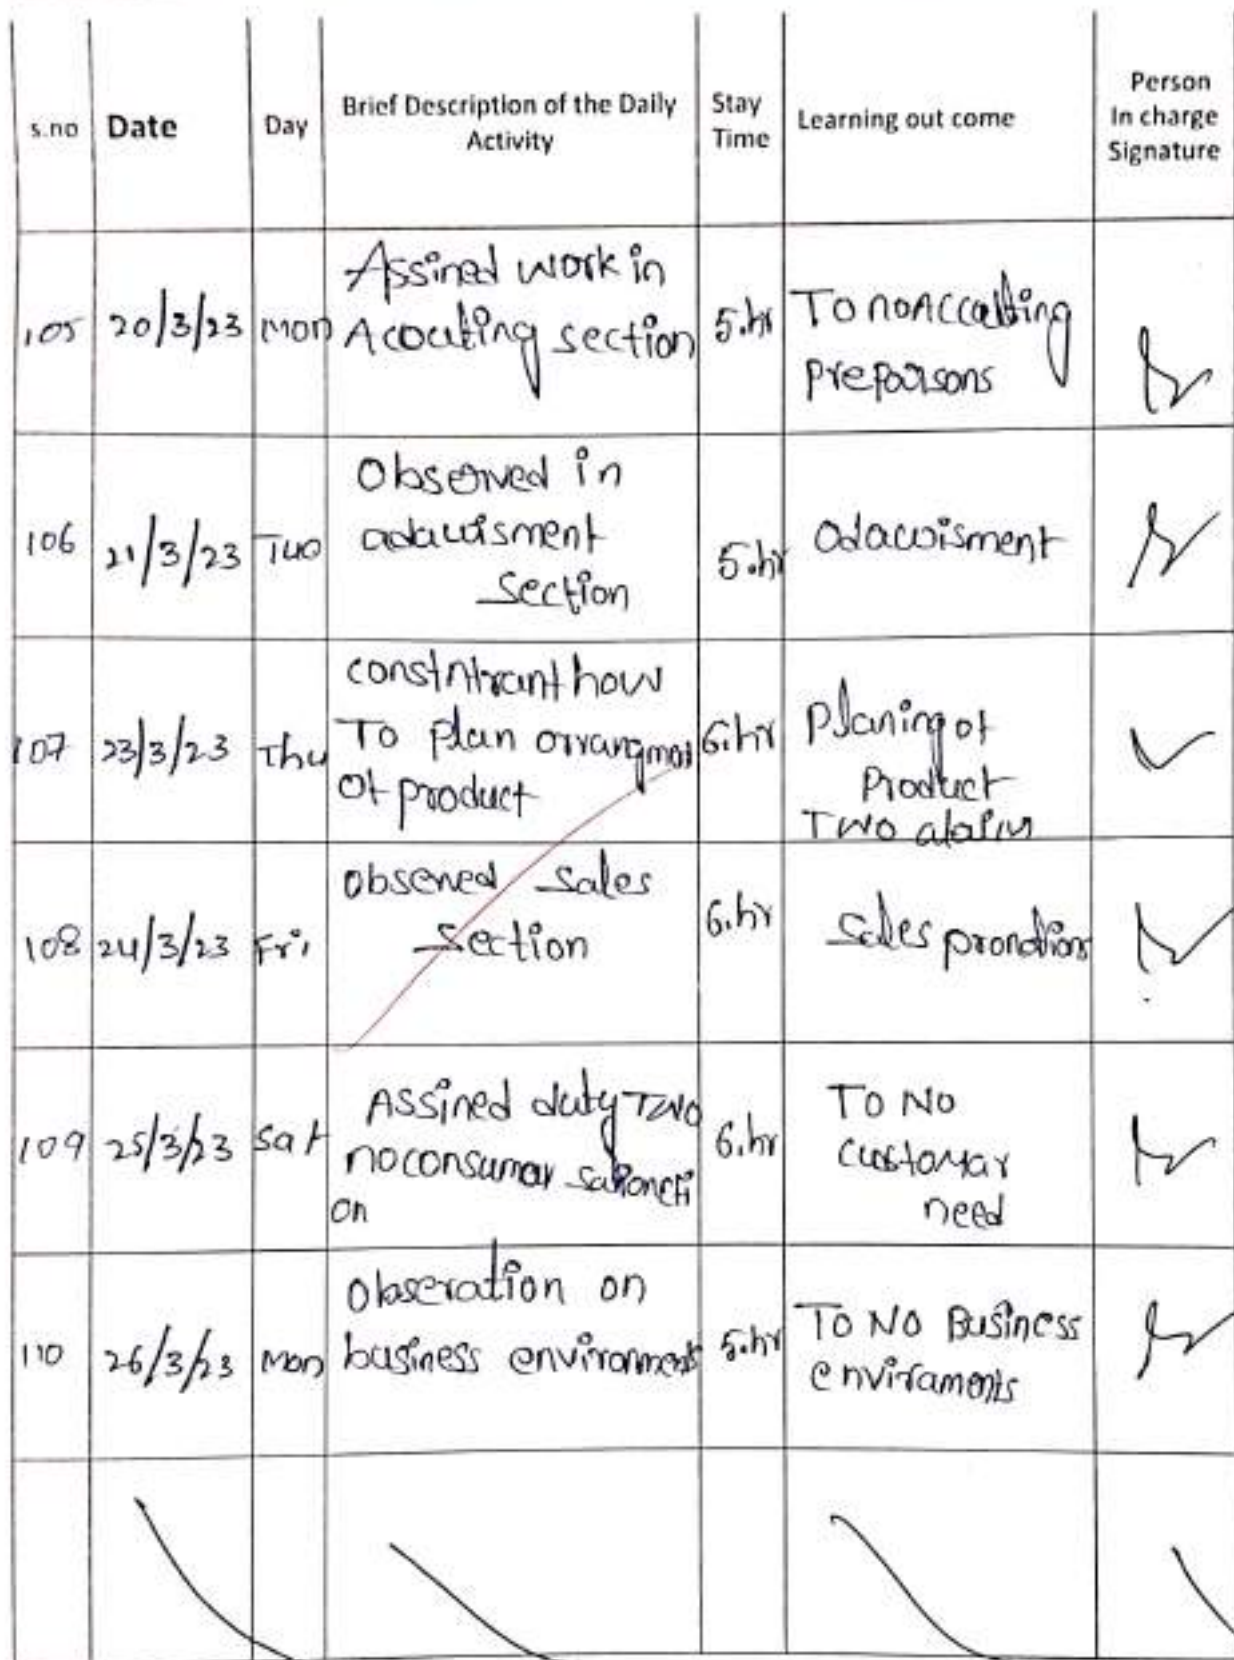 s.no Date Day Brief Description of the Daily Activity Stay Time Learning out come Person In charge Signature
105 20/3/23 Mon Assined work in Acouting section 5.hr To no Accouting
106 21/3/23 Observed in section 5.hr
107 23/3/23 Thu how To plan of product 6.hr Planing of Product Two
108 24/3/23 Fri, obsened sales section 6.hr sales
109 25/3/23 Sat Assined duty Two no consumar on 6.hr To No customar need
110 26/3/23 Mon Obseration on business environments 5.hr To No Business enviraments